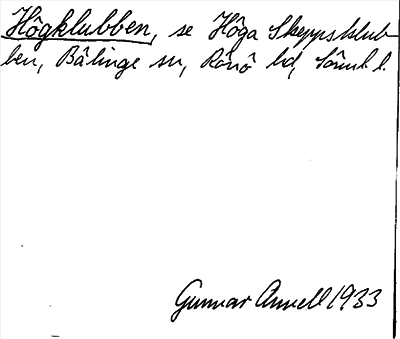 Högklubben, se Höga Skeppsklub-
ben, Bälinge sn, Rönö hd, Söml. l.
Gunnar Annell 1933